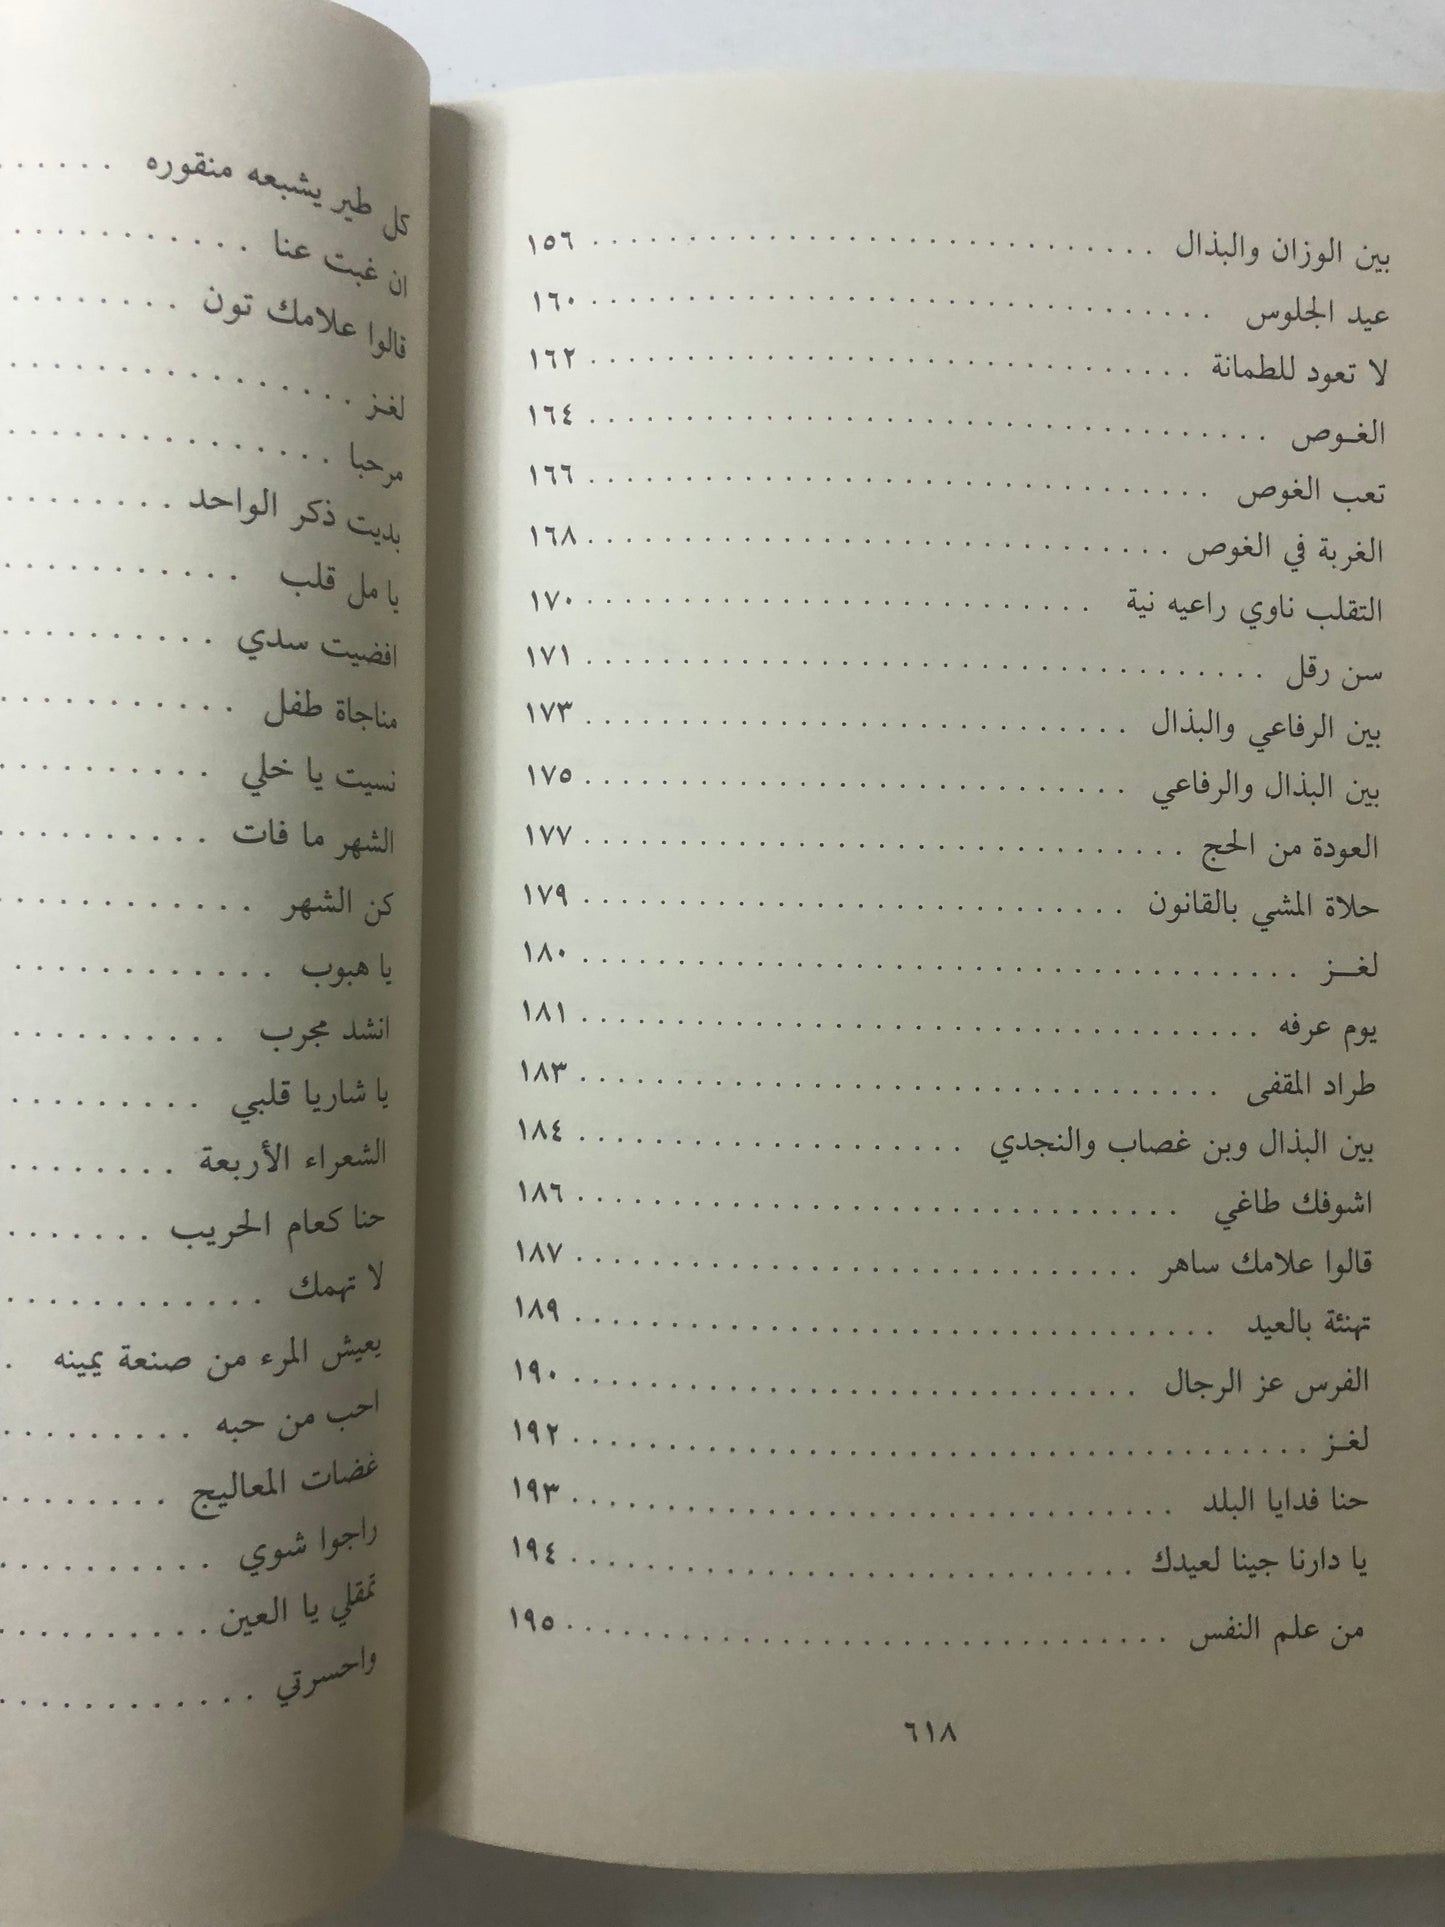 بين الوزان والبذال . . . . . . . . . . . . . . . . . . . . . . . . . . . . . ١٥٦
عيد الجلوس . . . . . . . . . . . . . . . . . . . . . . . . . . . . . . . . ١٦٠
لا تعود للطمانة . . . . . . . . . . . . . . . . . . . . . . . . . . . . . . . ١٦٢
الغـوص . . . . . . . . . . . . . . . . . . . . . . . . . . . . . . . . . . . ١٦٤
تعب الغوص . . . . . . . . . . . . . . . . . . . . . . . . . . . . . . . . ١٦٦
الغربة في الغوص . . . . . . . . . . . . . . . . . . . . . . . . . . . . . . ١٦٨
التقلب ناوي راعيه نية . . . . . . . . . . . . . . . . . . . . . . . . . . ١٧٠
سن رقل . . . . . . . . . . . . . . . . . . . . . . . . . . . . . . . . . . . ١٧١
بين الرفاعي والبذال . . . . . . . . . . . . . . . . . . . . . . . . . . . . ١٧٣
بين البذال والرفاعي . . . . . . . . . . . . . . . . . . . . . . . . . . . . ١٧٥
العودة من الحج . . . . . . . . . . . . . . . . . . . . . . . . . . . . . . . ١٧٧
حلاة المشي بالقانون . . . . . . . . . . . . . . . . . . . . . . . . . . . . ١٧٩
لغــز . . . . . . . . . . . . . . . . . . . . . . . . . . . . . . . . . . . . . ١٨٠
يوم عرفه . . . . . . . . . . . . . . . . . . . . . . . . . . . . . . . . . . . ١٨١
طراد المقفى . . . . . . . . . . . . . . . . . . . . . . . . . . . . . . . . . ١٨٣
بين البذال وبن غصاب والنجدي . . . . . . . . . . . . . . . . . . . . ١٨٤
اشوفك طاغي . . . . . . . . . . . . . . . . . . . . . . . . . . . . . . . ١٨٦
قالوا علامك ساهر . . . . . . . . . . . . . . . . . . . . . . . . . . . . . ١٨٧
تهنئة بالعيد . . . . . . . . . . . . . . . . . . . . . . . . . . . . . . . . . ١٨٩
الفرس عز الرجال . . . . . . . . . . . . . . . . . . . . . . . . . . . . . ١٩٠
لغـز . . . . . . . . . . . . . . . . . . . . . . . . . . . . . . . . . . . . . . ١٩٢
حنا فدايا البلد . . . . . . . . . . . . . . . . . . . . . . . . . . . . . . . ١٩٣
يا دارنا جينا لعيدك . . . . . . . . . . . . . . . . . . . . . . . . . . . . . ١٩٤
من علم النفس . . . . . . . . . . . . . . . . . . . . . . . . . . . . . . . ١٩٥
٦١٨
كل طير يشبعه منقوره . . . . . .
ان غبت عنا . . . . . . . . . . .
قالوا علامك تون . . . . . . . .
لغـز . . . . . . . . . . . . . . .
مرحبا . . . . . . . . . . . . . .
بديت ذكر الواحد . . . . . . . .
يا مل قلب . . . . . . . . . . .
افضيت سدي . . . . . . . . . .
مناجاة طفل . . . . . . . . . . .
نسيت يا خلي . . . . . . . . . .
الشهر ما فات . . . . . . . . . .
كن الشهر . . . . . . . . . . . .
يا هبوب . . . . . . . . . . . .
انشد مجرب . . . . . . . . . .
يا شاريا قلبي . . . . . . . . .
الشعراء الأربعة . . . . . . . .
حنا كعام الحريب . . . . . . .
لا تهمك . . . . . . . . . . . .
يعيش المرء من صنعة يمينه .
احب من حبه . . . . . . . . .
غضات المعاليج . . . . . . . .
راجوا شوي . . . . . . . . . .
تمقلي يا العين . . . . . . . . .
واحسرتي . . . . . . . . . . . .